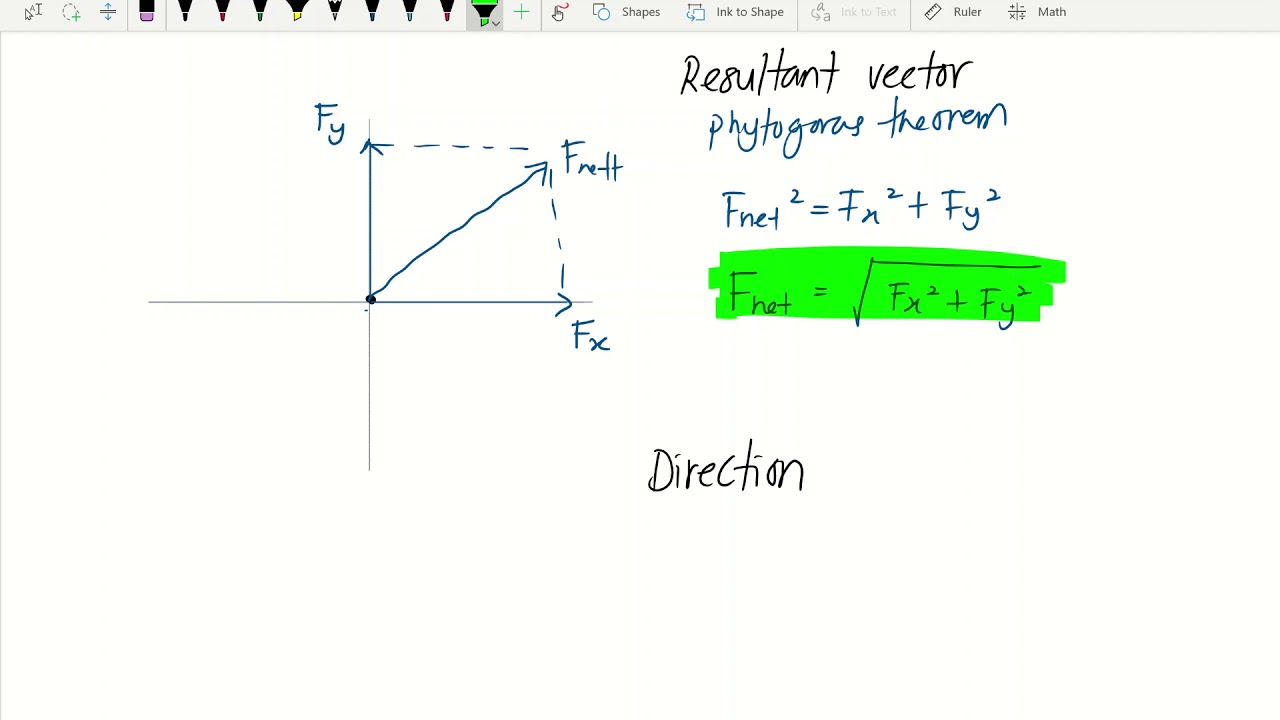 Shapes Ink to Shape Ink to Text Ruler Math
Resultant vector
phytogoras theorem
Fy
Fnett
Fnet² = Fx² + Fy²
Fnet = √Fx² + Fy²
Fx
Direction